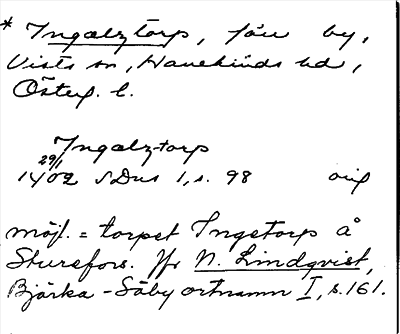 * Ingalztorp, förr by,
Vists sn, Hanekinds hd,
Österg. l.
Ingalztorp
29/1
1402 SDns 1, s. 98 orig
möjl. = torpet Ingetorp å
Sturefors. Jfr N. Lindqvist,
Bjärka-Säby ortnamn I, s. 161.